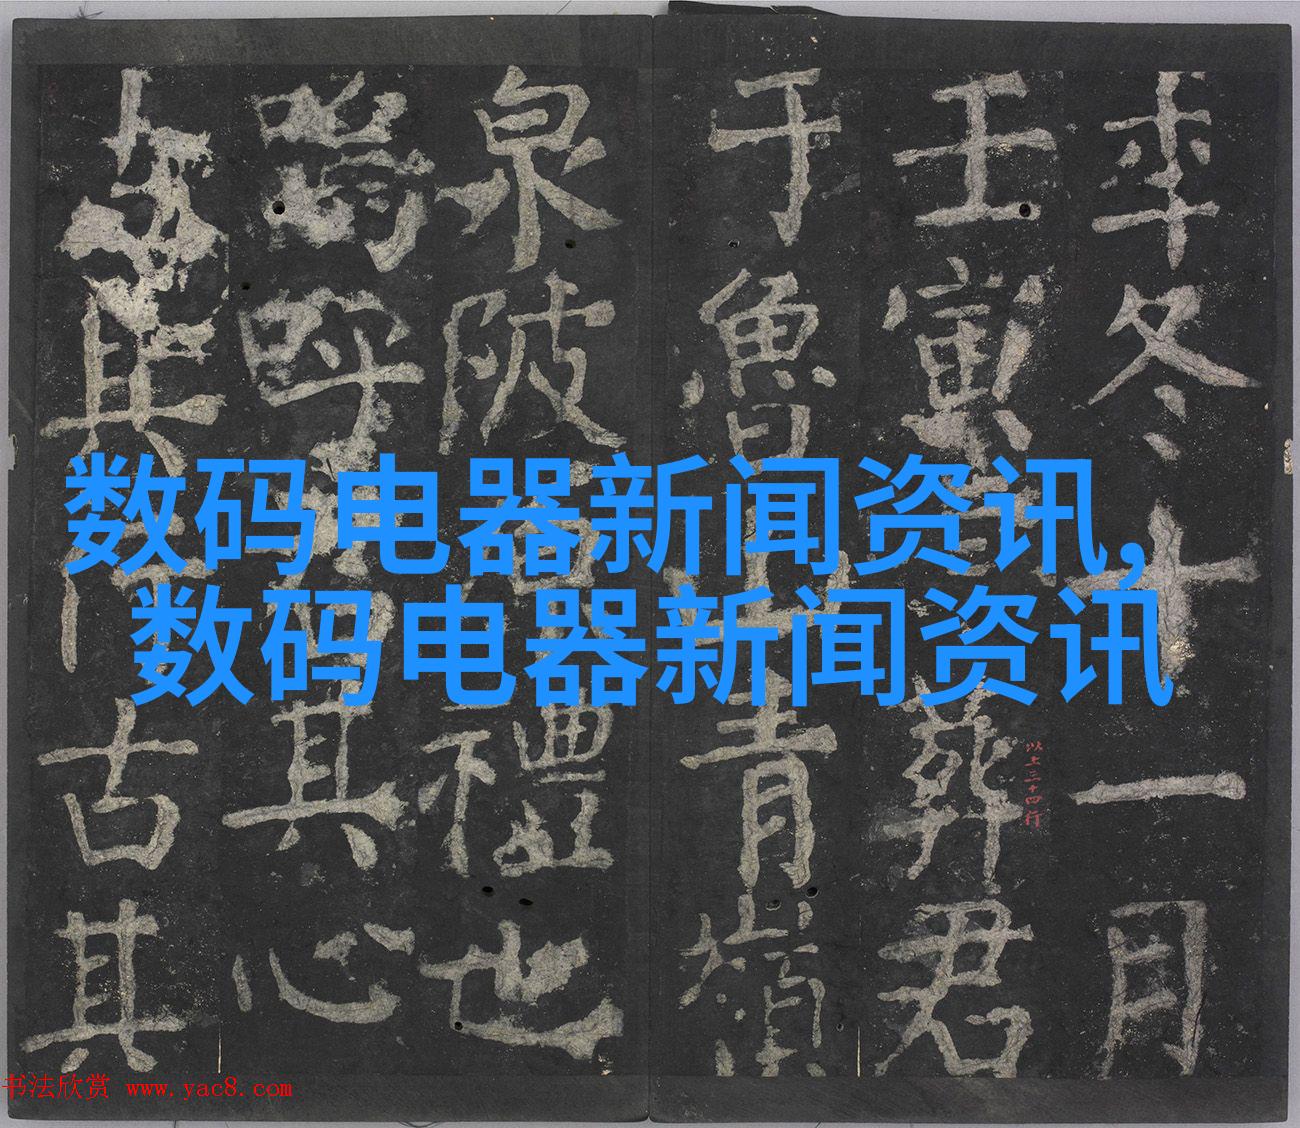 数码电器新闻资讯,
数码电器新闻资讯
年冬十一月
壬寅葬君
于魯山青嶺
泉陂禮也
嗚呼其心
其古其
以上三十四行
书法欣赏 www.yac8.com